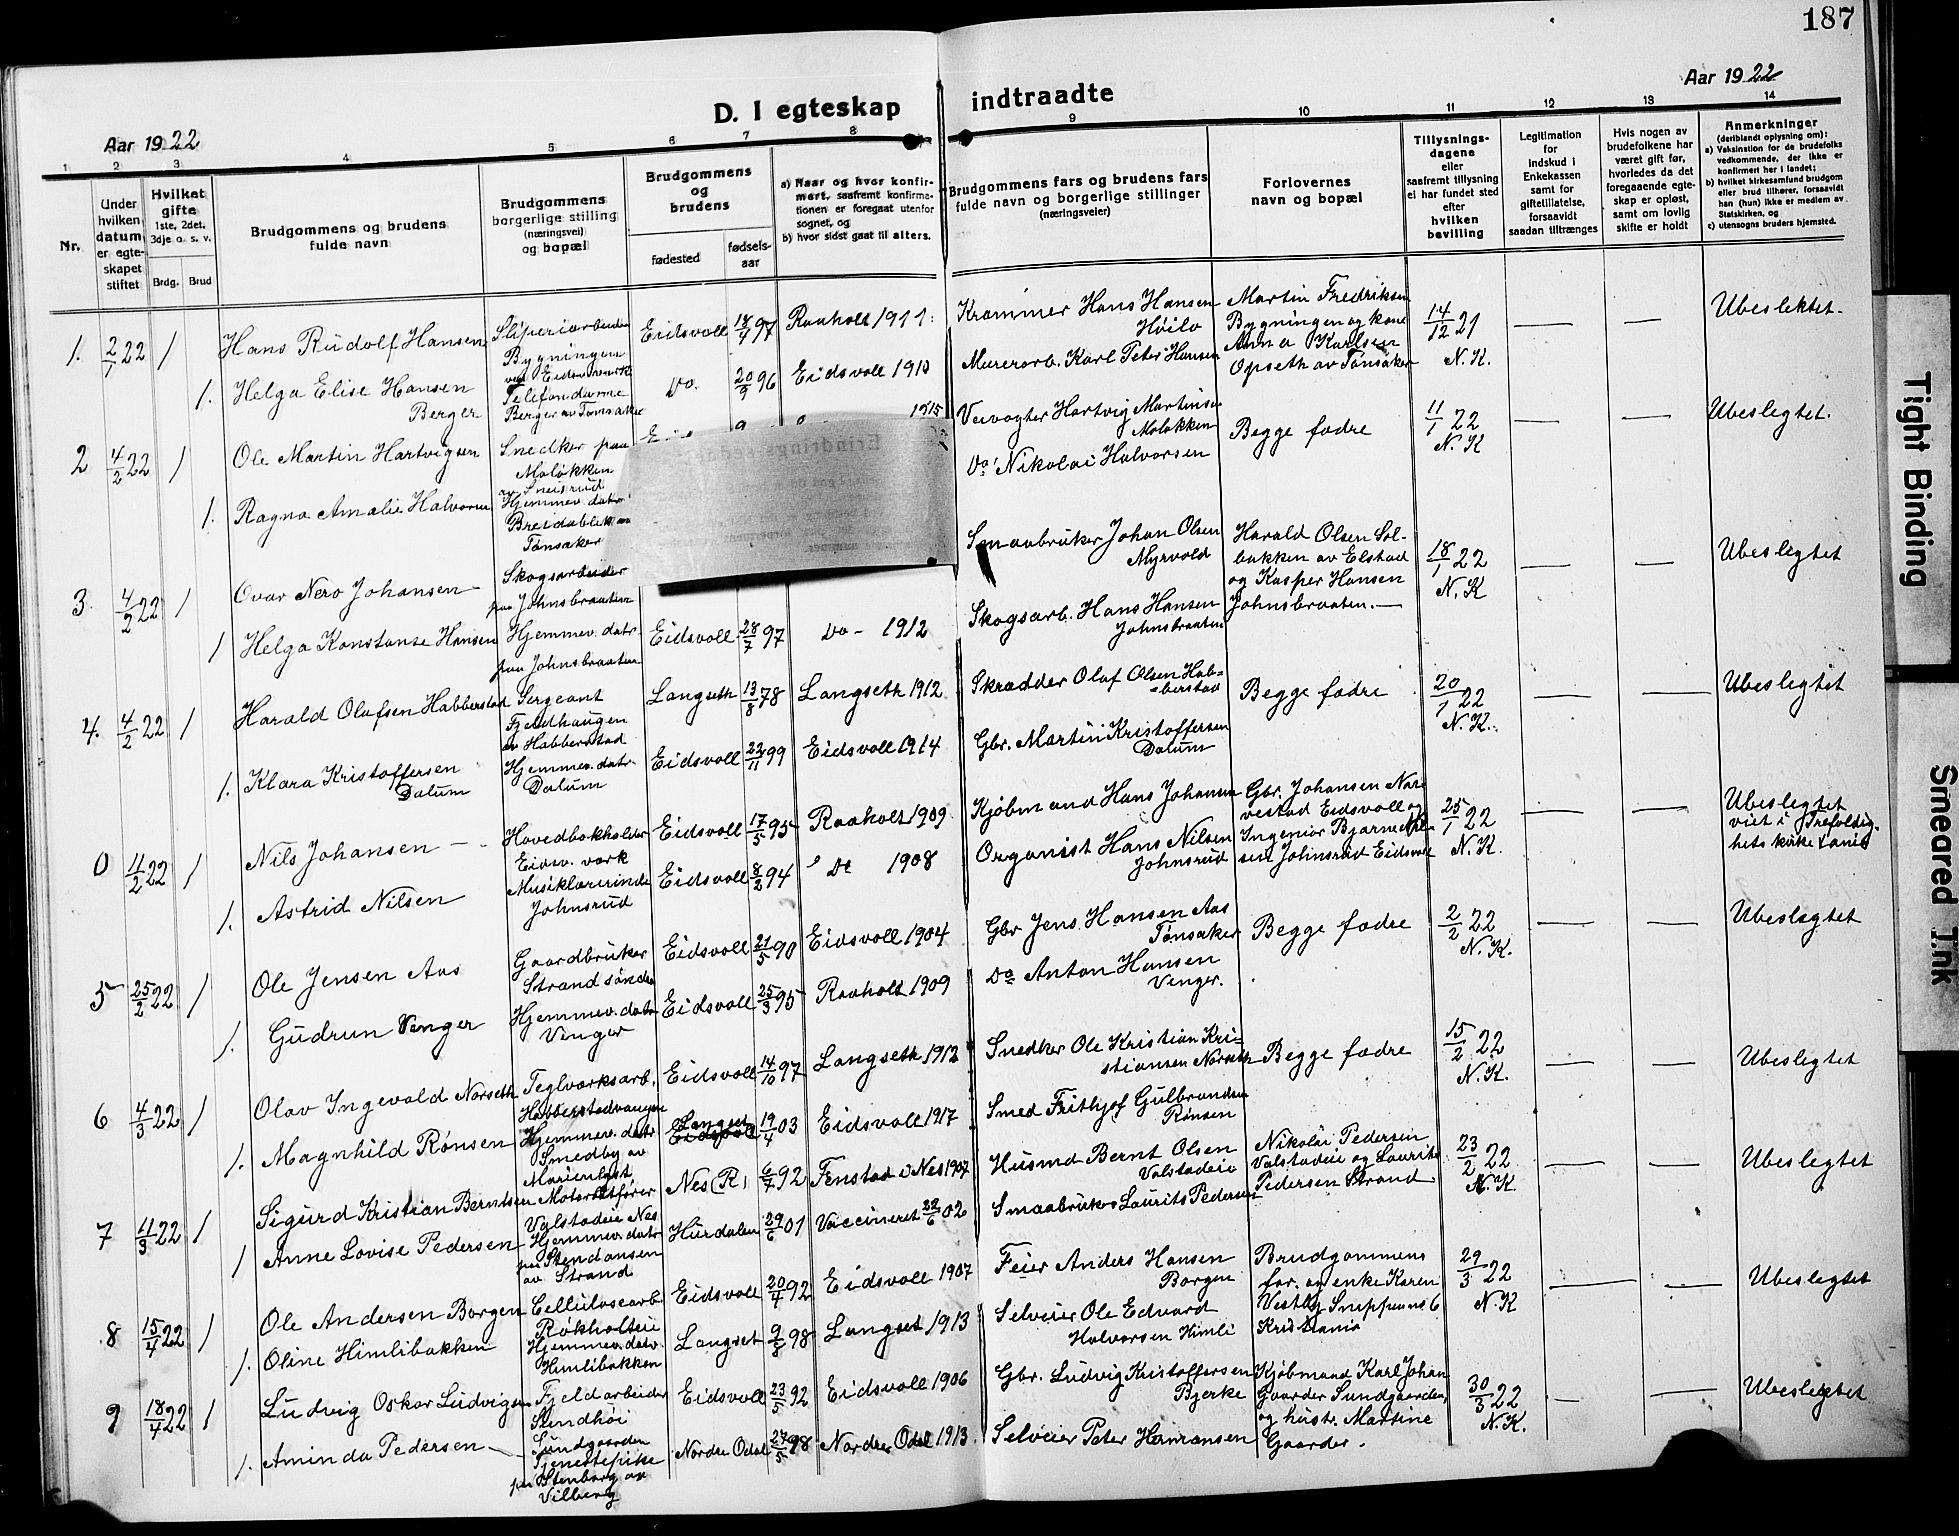 187
Aar 1922
D. I egteskap indtraadte
Aar 1922
1 2 3 4 5 6 7 8 9 10 11 12 13 14
Nr.
Under
hvilken
datum
er egte-
skapet
stiftet
Hvilket
gifte
1ste, 2det,
3dje o. s. v.
Brdg. Brud
Brudgommens og brudens
fulde navn
Brudgommens
borgerlige stilling
(næringsvei)
og bopæl
Brudgommens
og
brudens
fødested
fødsels-
aar
a) Naar og hvor konfir-
mert, saafremt konfirma-
tionen er foregaat utenfor
sognet, og
b) hvor sidst gaat til alters.
Brudgommens fars og brudens fars
fulde navn og borgerlige stillinger
(næringsveier)
Forlovernes
navn og bopæl
Tillysnings-
dagene
eller
saafremt tillysning
ei har fundet sted
efter
hvilken
bevilling
Legitimation
for
indskud i
Enkekassen
samt for
giftetillatelse,
forsaavidt
saadan tiltrænges
Hvis nogen av
brudefolkene har
været gift før,
hvorledes da det
foregaaende egte-
skap er opløst,
samt om lovlig
skifte er holdt
Anmerkninger
(deriblandt oplysning om):
a) Vaksination for de brudefolks
vedkommende, der ikke er
konfirmert her i landet;
b) hvilket kirkesamfund brudgom
eller brud tilhører, forsaavidt
han (hun) ikke er medlem av
Statskirken, og
c) utensogns bruders hjemsted.
1. 2/1 22 1 Hans Rudolf Hansen
Sliperiarbeider
Bygningen
ved Eidsv. verk
Eidsvoll 18/4 97 Raaholt 1911.
Krammer Hans Hansen
Høilo
Martin Fredriksen
Bygningen og kone
Anna Karlsen
Opseth av Tønsaker
14/12 21
N. K.
Ubeslektet.
1. Helga Elise Hansen
Berger
Telefondame
Berger av Tønsaker
Do. 20/9 96 Eidsvoll 1910
Murerarb. Karl Peter Hansen
2 4/2 22 1 Ole Martin Hartvigsen
Snedker paa
Moløkken
av Sneisrud
1915
Veivogter Hartvig Martinsen
Moløkken
Begge fædre
11/1 22
N. K
Ubeslegtet.
1. Ragna Amalie Halvorsen
Hjemmev. datr
Breidablik av
Tønsaker
Do Nikolai Halvorsen
3. 4/2 22 1 Ovar Nero Johansen
Skogsarbeider
paa Johnsbraaten
Smaabruker Johan Olsen
Myrvold
Harald Olsen Sol-
bakken av Elstad
og Kasper Hansen
Johnsbraaten.
18/1 22
N. K
Ubeslegtet
1 Helga Konstanse Hansen
Hjemmev. datr.
paa Johnsbraaten
Eidsvoll 28/7 97 Do - 1912
Skogsarb. Hans Hansen
Johnsbraaten
4. 4/2 22 1 Harald Olafsen Habberstad
Sergeant
Fjeldhaugen
av Habberstad
Langseth 13/8 78 Langseth 1912
Skrædder Olaf Olsen Hab-
berstad
Begge fædre
20/1 22
N. K.
Ubeslegtet
1. Klara Kristoffersen
Dalum
Hjemmev. datr.
Dalum
Eidsvoll 23/11 99 Eidsvoll 1914
Gbr. Martin Kristoffersen
Dalum
0 11/2 22 1 Nils Johansen
Hovedbokholder
Eidsv. værk
Eidsvoll 17/5 95 Raaholt 1909
Kjøbmand Hans Johansen
Gbr. Johansen Nar-
vestad Eidsvoll og
Ingeniør Bjarne Nil-
sen Johnsrud Eidsvoll
25/1 22
N. K.
Ubeslegtet
viet i Trefoldig-
hets kirke
1. Astrid Nilsen
Musiklærerinde
Johnsrud
Eidsvoll 8/2 94 Do 1908
Organist Hans Nilsen
Johnsrud
5 25/2 22 1 Ole Jensen Aas
Gaardbruker
Strand søndre
Eidsvoll 21/5 90 Eidsvoll 1904
Gbr Jens Hansen Aas
Tønsaker
Begge fædre
2/2 22
N. K.
Ubeslægtet
1. Gudrun Venger
Hjemmev. datr
Venger
Eidsvoll 25/3 95 Raaholt 1909
Do Anton Hansen
Venger.
6 4/3 22 1 Olav Ingevald Norseth
Teglverksarb.
Habberstadhaugen
Eidsvoll 14/10 97 Langseth 1912
Snedker Ole Kristian Kri-
stiansen Norseth
Begge fædre
15/2 22
N. K.
Ubeslegtet
1. Magnhild Rønsen
Hjemmev. datr
Smedby av
Marienlyst
Langset
Eidsvoll 19/4 03 Eidsvoll 1917
Smed Frithjof Gulbrandsen
Rønsen
7 11/3 22 1 Sigurd Kristian Berntsen
Motorbåtfører
Valstadeie Nes
Nes (R) 6/7 92 Fenstad i Nes 1907
Husmd Bernt Olsen
Valstadeie
Nikolai Pedersen
Valstadeie og Laurits
Pedersen Strand
23/2 22
N. K
Ubeslegtet
1 Anne Lovise Pedersen
Hjemmev. datr
paa Stendansen
av Strand
Hurdalen 29/6 01 Vaccineret 22/6 02
Smaabruker Laurits Pedersen
8 15/4 22 1 Ole Andersen Borgen
Cellulosearb
Røkholteie
Eidsvoll 20/4 92 Eidsvoll 1907
Feier Anders Hansen
Borgen
Brudgommens
far. og enke Karen
Vestby Snippenns. 6
Kristiania
29/3 22
N. K
Ubeslegtet
1. Oline Himlibakken
Hjemmev. datr.
Himlibakken
Langset 9/8 98 Langset 1913
Selveier Ole Edvard
Halvorsen Himli
9 18/4 22 1 Ludvig Oskar Ludvigsen
Fjeldarbeider
Stendhøi
Sundgaarden
Eidsvoll 23/5 92 Eidsvoll 1906
Gbr. Ludvig Kristoffersen
Bjerke
Kjøbmand Karl Johan
Gaarder Sundgaarden,
og hustr. Martine
Gaarder.
30/3 22
N. K.
Ubeslegtet
1. Aminda Pedersen
Tjenestepike
paa Stenborg av
Vilberg
Nordre Odal 27/5 98 Nordre Odal 1913
Selveier Peter Hermansen
Tight Binding
Smeared Ink